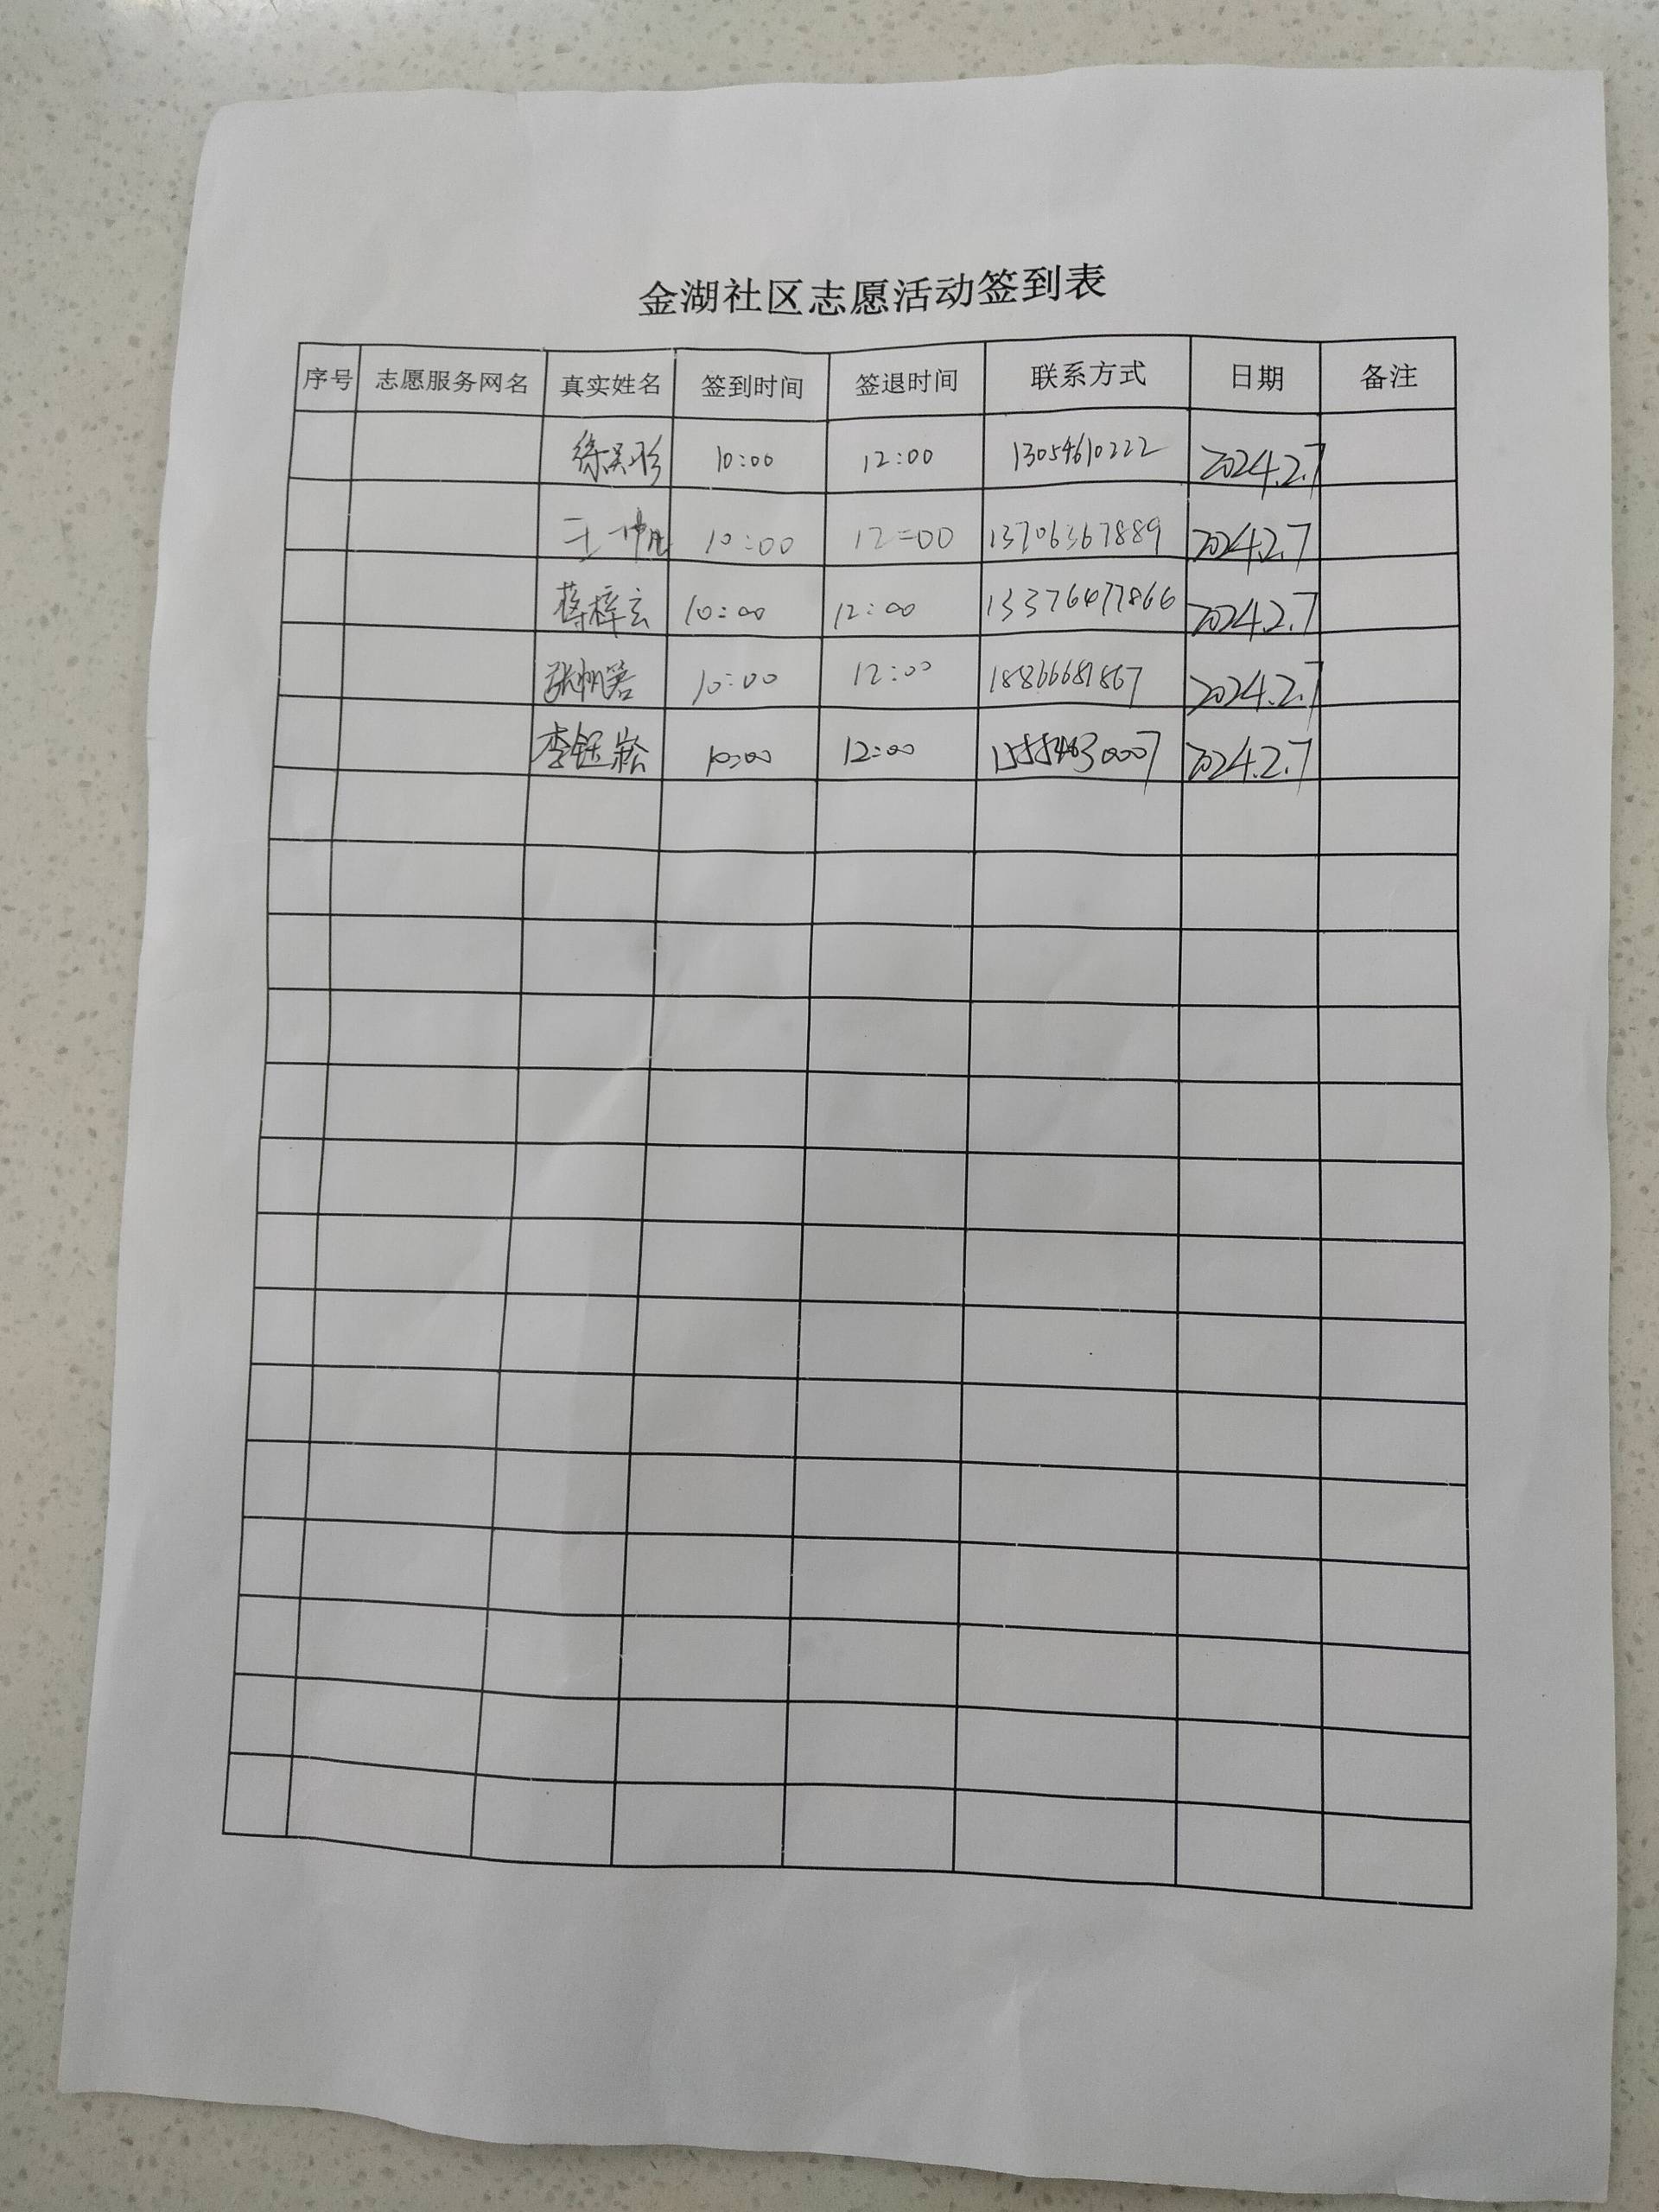 金湖社区志愿活动签到表
序号 志愿服务网名 真实姓名 签到时间 签退时间 联系方式 日期 备注
徐昊彤 10:00 12:00 13054610222 2024.2.7
王一帆 10:00 12:00 13706367889 2024.2.7
蒋梓玄 10:00 12:00 13376477866 2024.2.7
张帆 10:00 12:00 18866681867 2024.2.7
李钰崧 10:00 12:00 2024.2.7